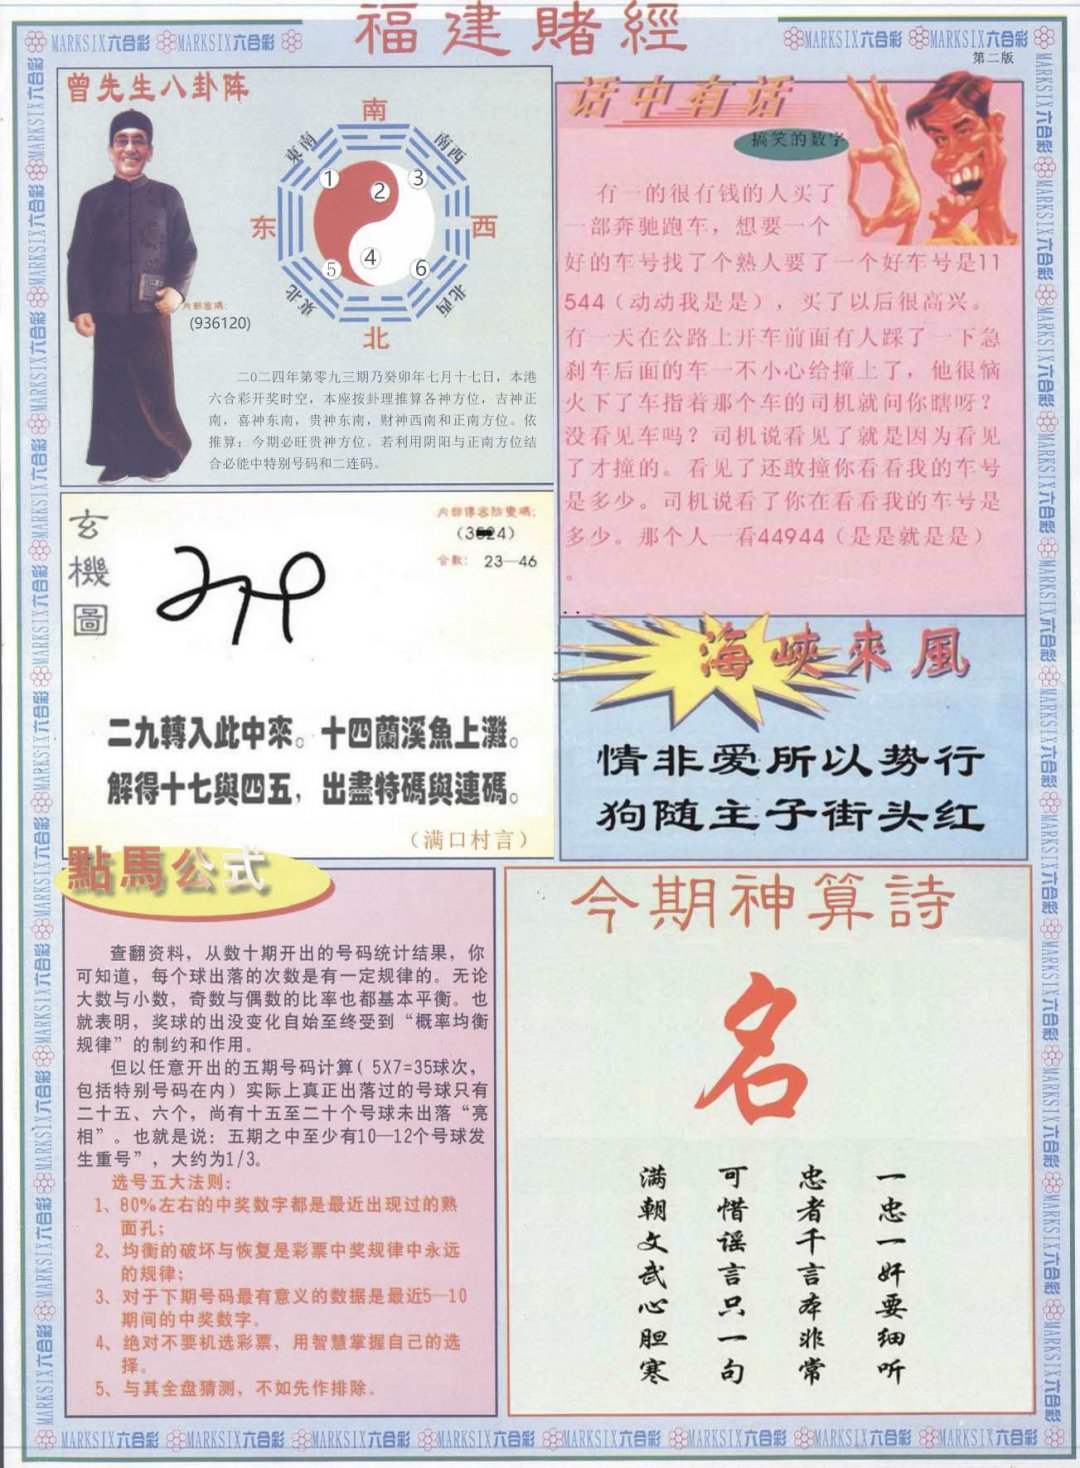 福建賭經
MARKSIX六合彩 MARKSIX六合彩
MARKSIX六合彩 MARKSIX六合彩
第二版
曾先生八卦阵
南
東南
南西
①
②
③
东
西
④
⑤
⑥
東北
北西
北
内部密碼:
(936120)
二〇二四年第零九三期乃癸卯年七月十七日，本港
六合彩开奖时空，本座按卦理推算各神方位，吉神正
南，喜神东南，贵神东南，财神西南和正南方位。依
推算：今期必旺贵神方位。若利用阴阳与正南方位结
合必能中特别号码和二连码。
话中有话
搞笑的数字
有一的很有钱的人买了
一部奔驰跑车，想要一个
好的车号找了个熟人要了一个好车号是11
544（动动我是是），买了以后很高兴。
有一天在公路上开车前面有人踩了一下急
刹车后面的车一不小心给撞上了，他很恼
火下了车指着那个车的司机就问你瞎呀？
没看见车吗？司机说看见了就是因为看见
了才撞的。看见了还敢撞你看看我的车号
是多少。司机说看了你在看看我的车号是
多少。那个人一看44944（是是就是是）
。
玄機圖
内部傳密防變碼:
合數: 23—46
二九轉入此中來。十四蘭溪魚上灘。
解得十七與四五，出盡特碼與連碼。
（满口村言）
海峽來風
情非爱所以势行
狗随主子街头红
點馬公式
查翻资料，从数十期开出的号码统计结果，你
可知道，每个球出落的次数是有一定规律的。无论
大数与小数，奇数与偶数的比率也都基本平衡。也
就表明，奖球的出没变化自始至终受到“概率均衡
规律”的制约和作用。
但以任意开出的五期号码计算( 5X7=35球次，
包括特别号码在内）实际上真正出落过的号球只有
二十五、六个，尚有十五至二十个号球未出落“亮
相”。也就是说：五期之中至少有10—12个号球发
生重号”，大约为1/3。
选号五大法则:
1、80%左右的中奖数字都是最近出现过的熟
面孔；
2、均衡的破坏与恢复是彩票中奖规律中永远
的规律；
3、对于下期号码最有意义的数据是最近5—10
期间的中奖数字。
4、绝对不要机选彩票，用智慧掌握自己的选
择。
5、与其全盘猜测，不如先作排除。
今期神算詩
名
一忠一奸要细听
忠者千言本非常
可惜谣言只一句
满朝文武心胆寒
MARKSIX六合彩 MARKSIX六合彩 MARKSIX六合彩 MARKSIX六合彩 MARKSIX六合彩 MARKSIX六合彩 MARKSIX六合彩 MARKSIX六合彩